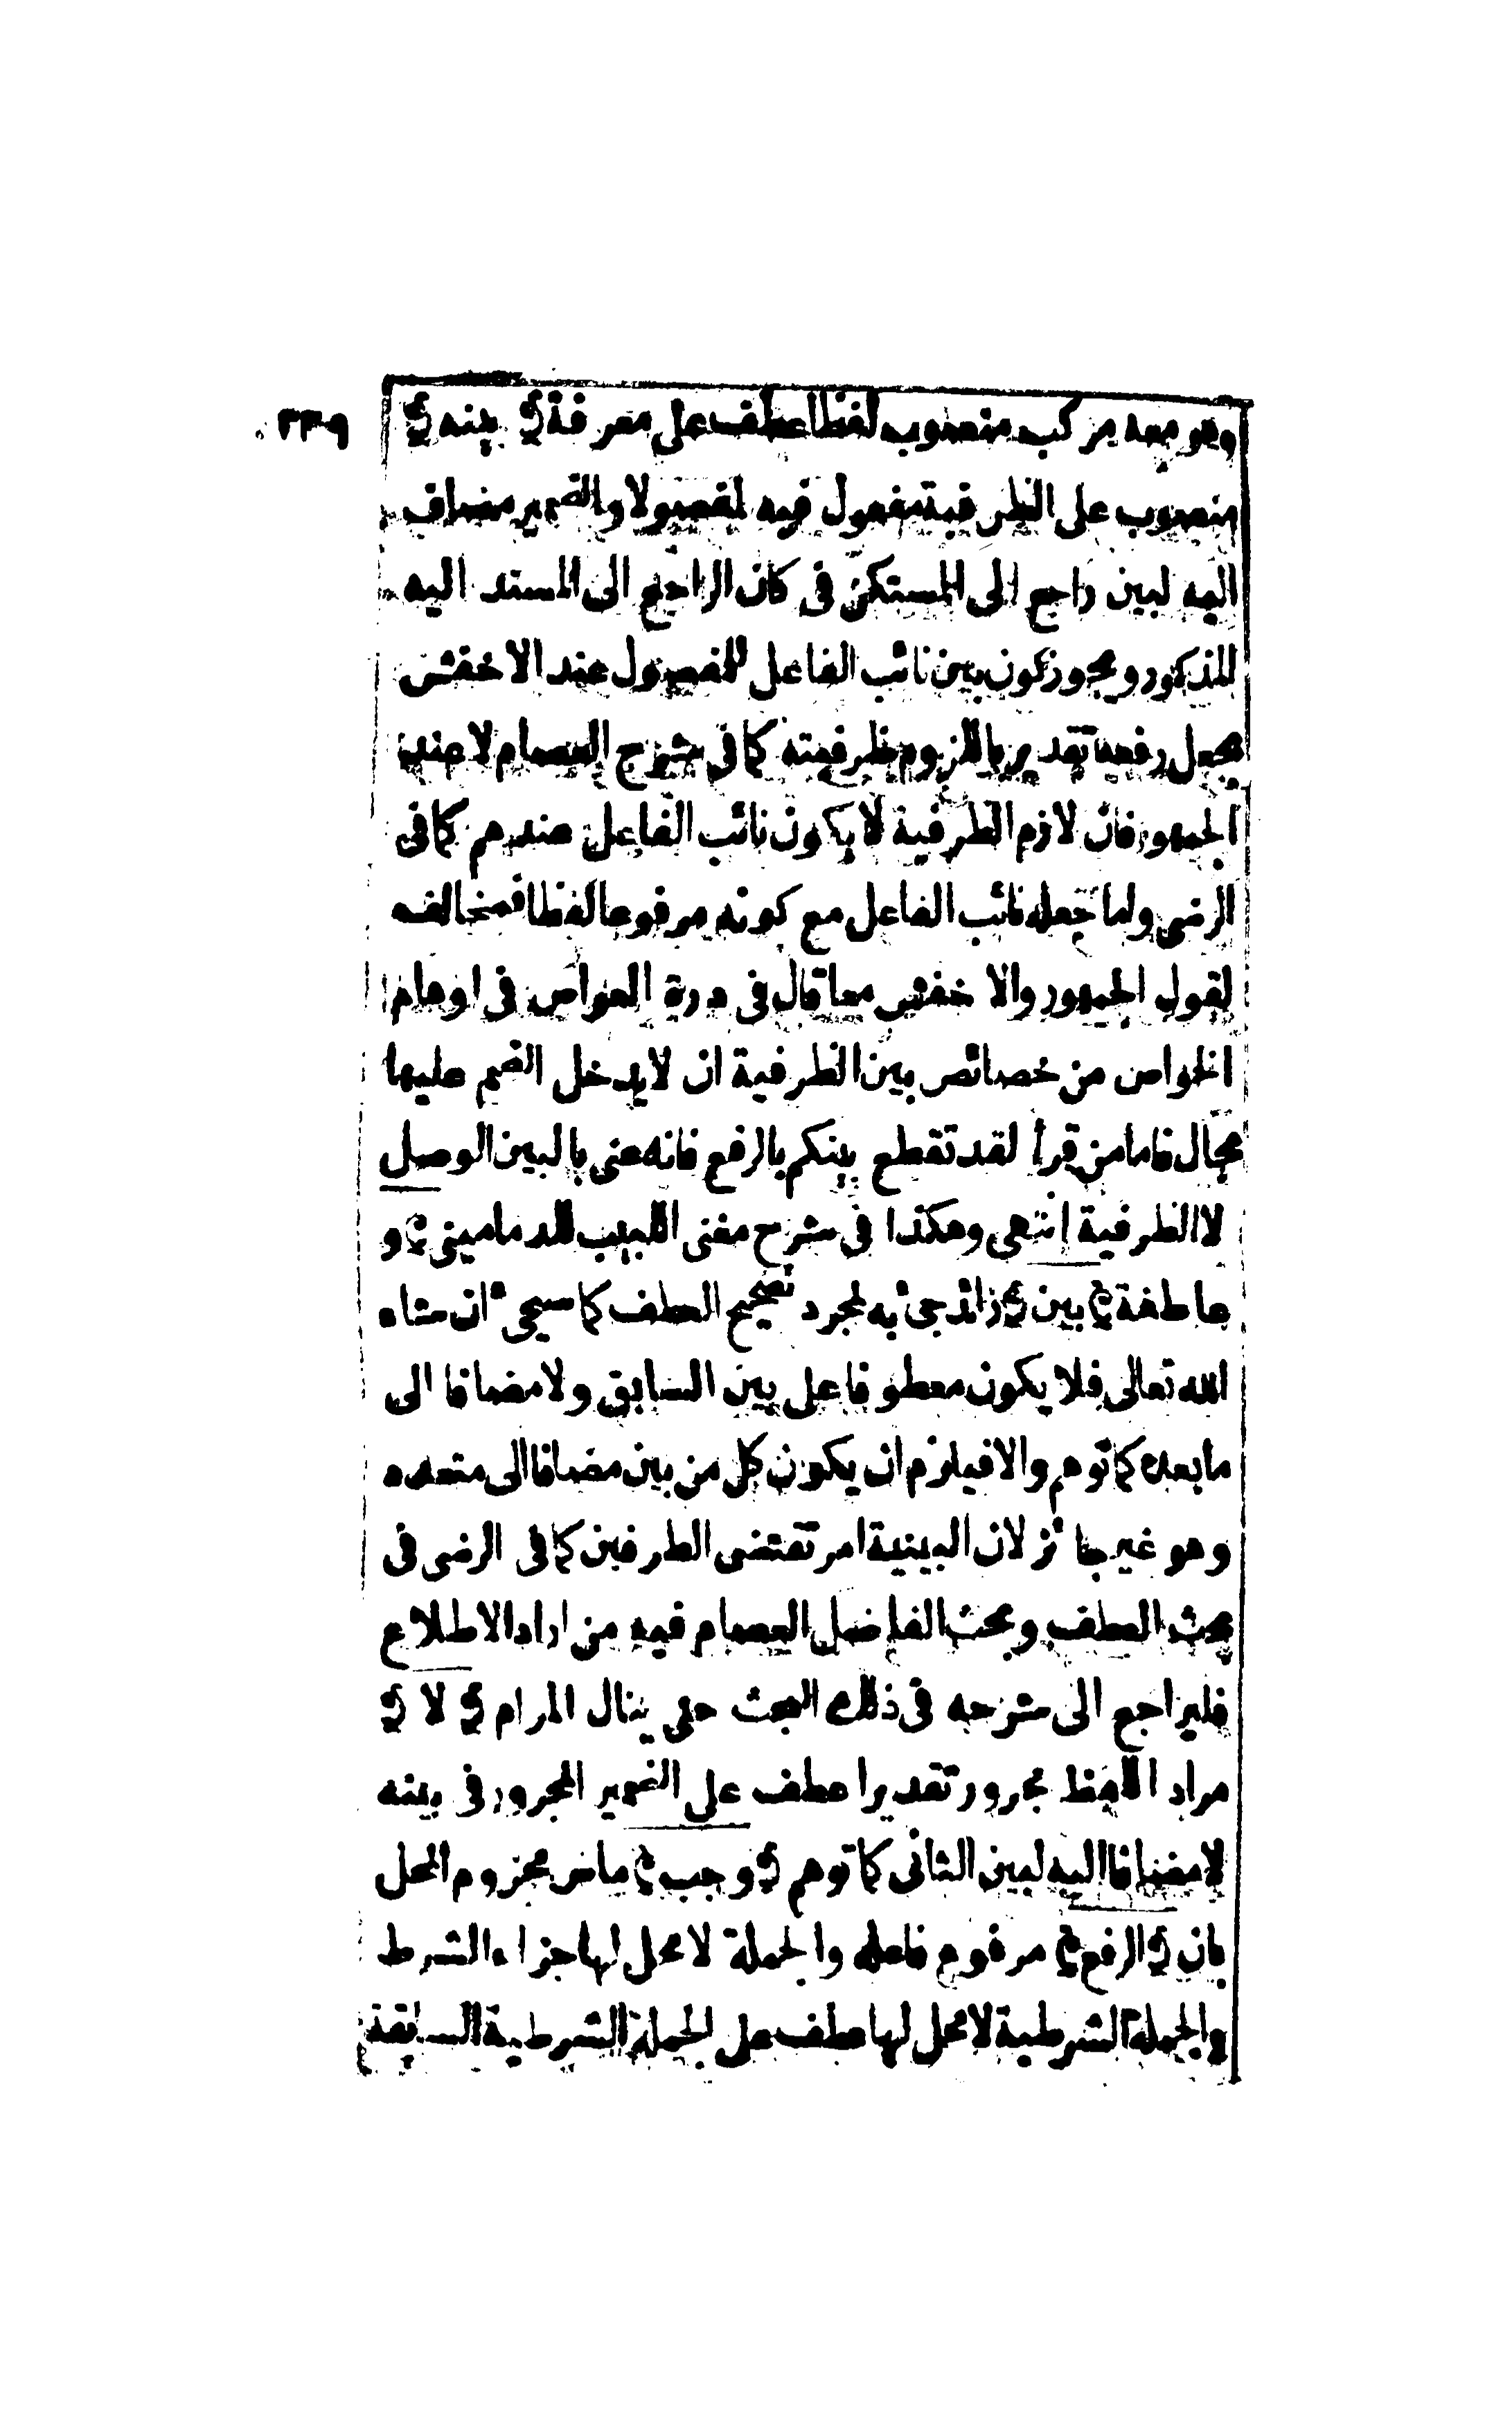 ٣٣٩
وهو معه مركب منصوب لفظا عطف على معرفة ﴿ بينه ﴾
منصوب على الظرفية مفعول فيه لمفصولا والضمير مضاف
اليه لبين راجع الى المستكن فى كان الراجع الى المسند اليه
المذكور ويجوز كون بين نائب الفاعل للمفصول عند الاخفش
بجعل رفعه تقديريا للزوم ظرفيته كما فى شرح العصام لا عند
الجمهور فان لازم الظرفية لا يكون نائب الفاعل عندهم كما فى
الرضى واما جعله نائب الفاعل مع كونه مرفوعا لفظا فمخالف
لقول الجمهور والاخفش معا قال فى درة الغواص فى اوهام
الخواص من خصائص بين الظرفية ان لا يدخل الضم عليها
بحال فاما من قرأ لقد تقطع بينكم بالرفع فانه عنى بالبين الوصل
لا الظرفية انتهى وهكذا فى شرح مغنى اللبيب للدمامينى ﴿ و
عاطفة ﴾ بين ﴿ زائد جئ به لمجرد تصحيح العطف كما سيجئ ان شاء
الله تعالى فلا يكون معطوفا على بين السابق ولا مضافا الى
ما بعده كما توهم والا فيلزم ان يكون كل من بين مضافا الى متعدد
وهو غير جائز لان البينية امر تقتضى الطرفين كما فى الرضى فى
بحث العطف وبحث الفاضل العصام فيه من اراد الاطلاع
فليراجع الى شرحه فى ذلك البحث حتى ينال المرام ﴿ لا ﴾
مراد اللفظ مجرور تقديرا عطف على الضمير المجرور فى بينه
لا مضافا اليه لبين الثانى كما توهم ﴿ وجب ﴾ ماض مجزوم المحل
بان ﴿ الرفع ﴾ مرفوع فاعله والجملة لا محل لها جزاء الشرط
والجملة الشرطية لا محل لها عطف على الجملة الشرطية السابقة